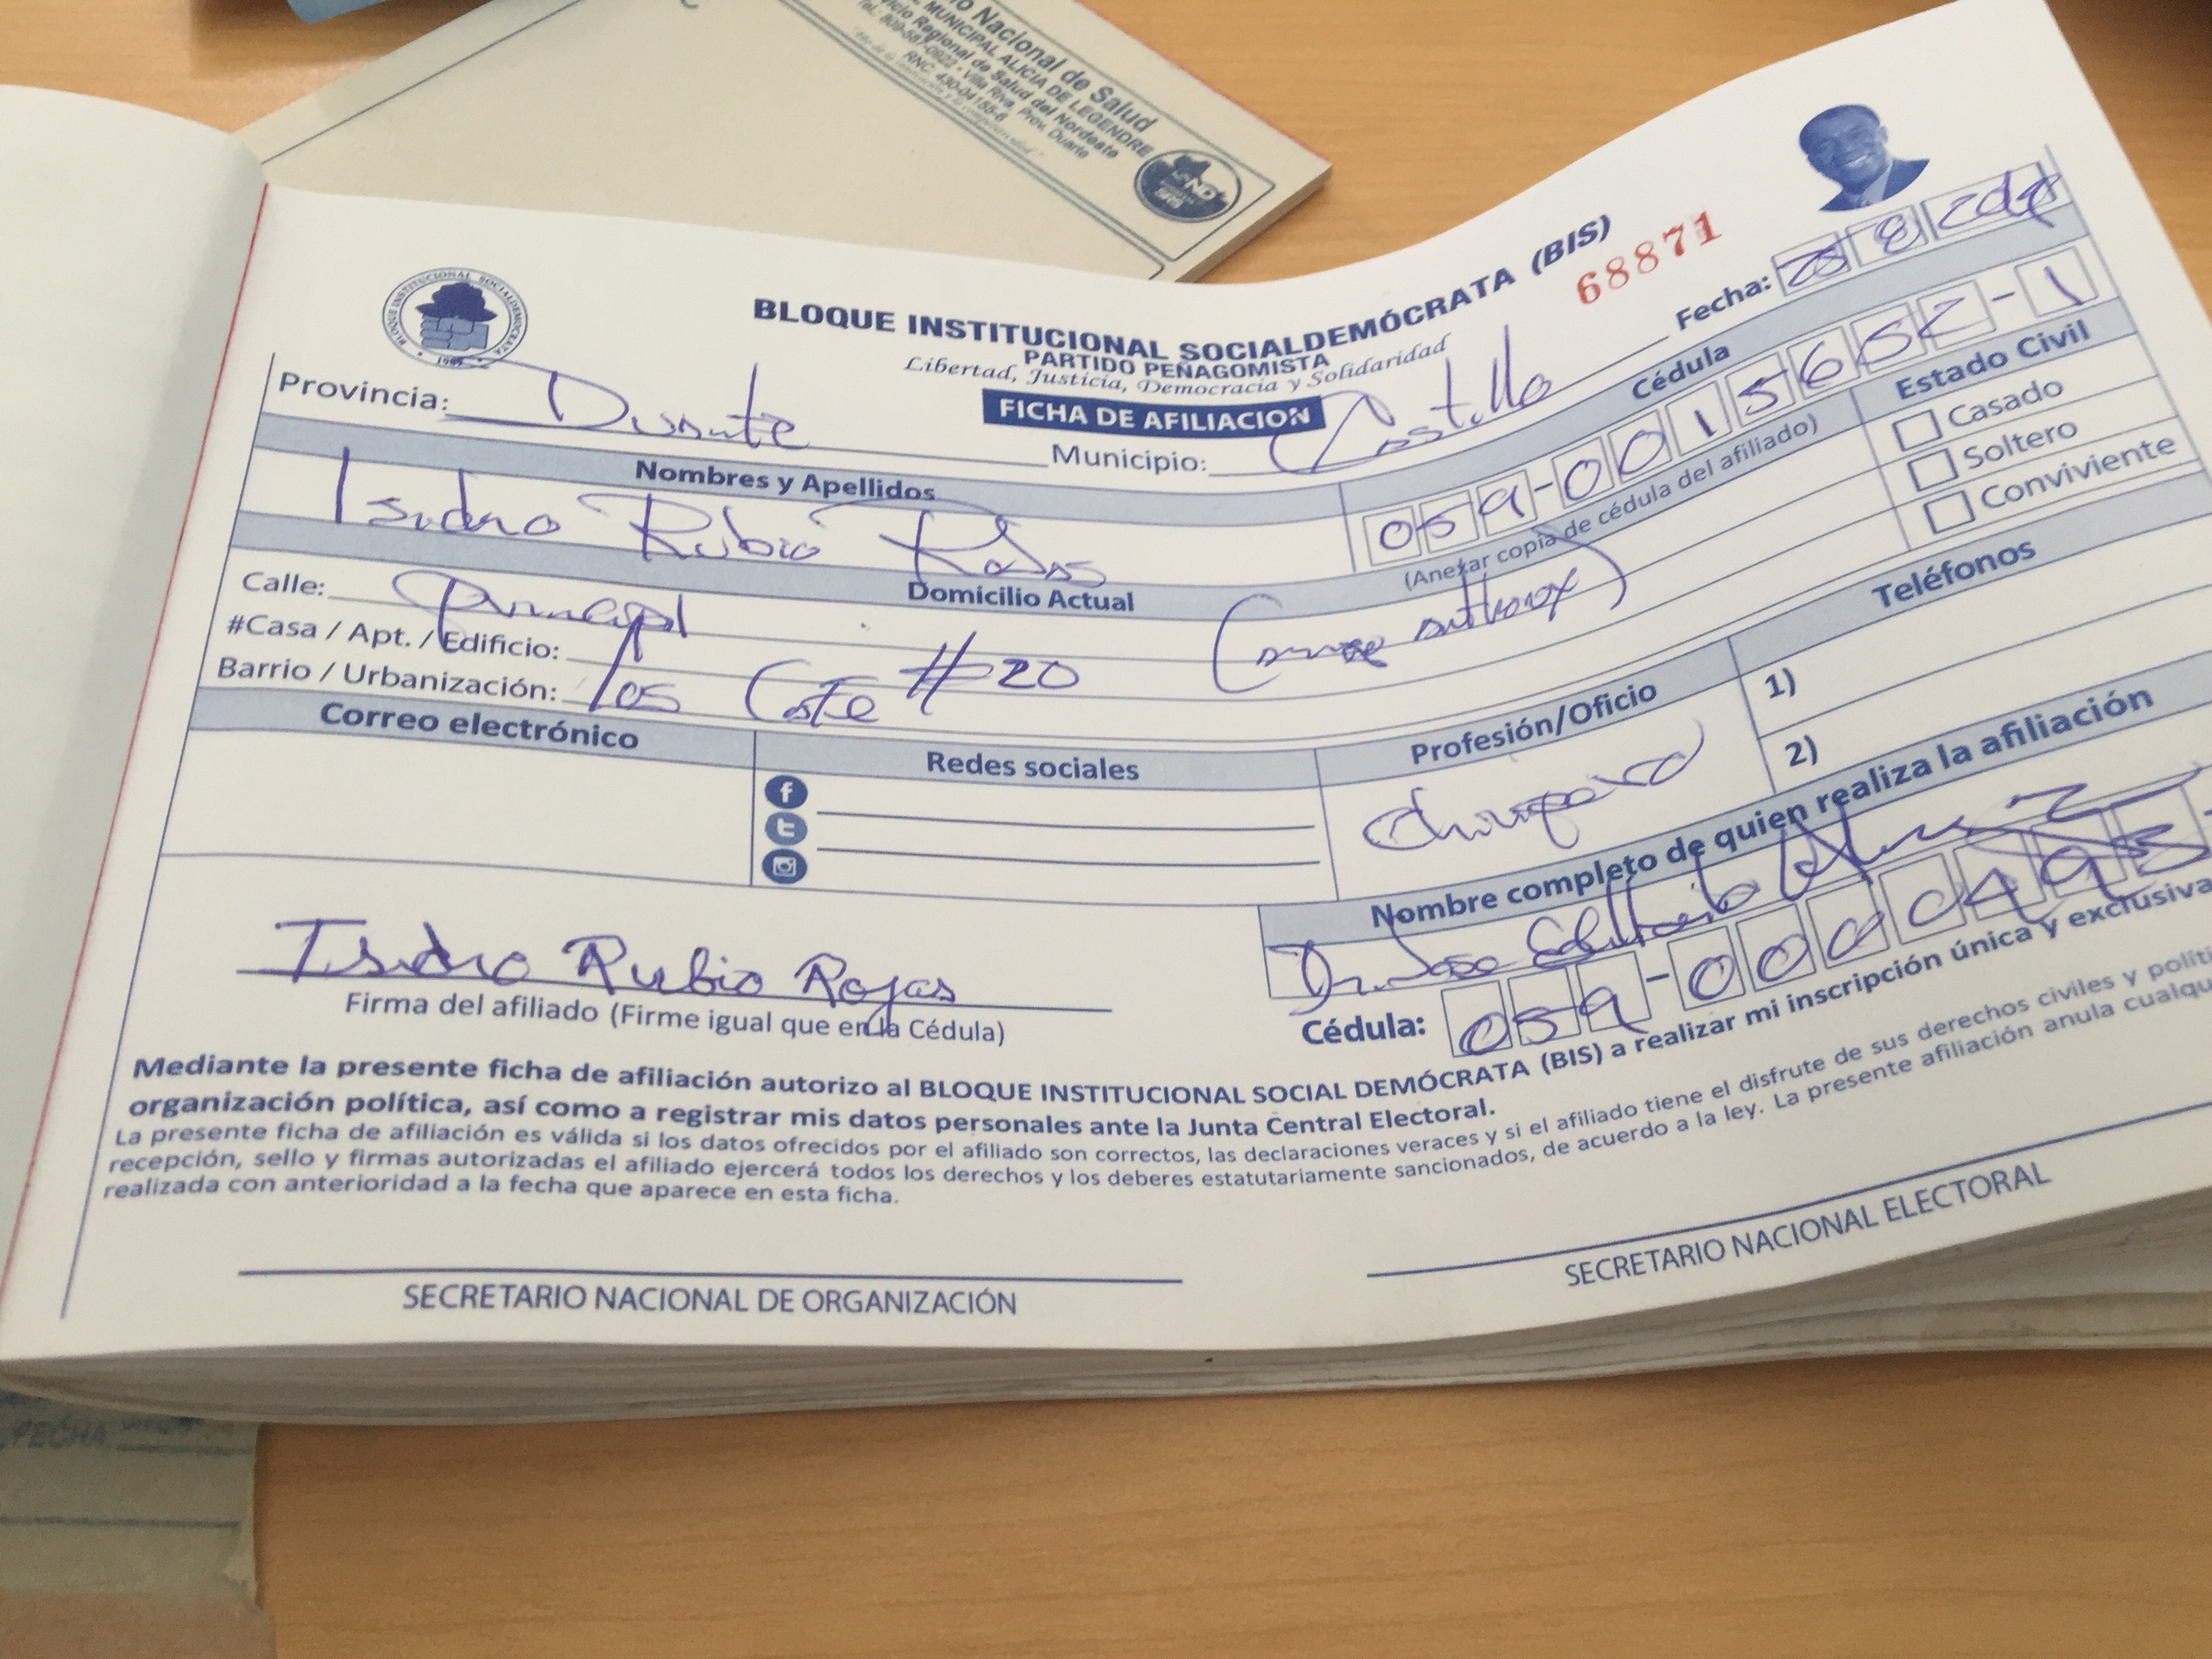 io Nacional de Salud
MUNICIPAL ALICIA DE LEGENDRE
icio Regional de Salud del Nordeste
Tel.: 809-587-0922 - Villa Riva, Prov. Duarte
RNC. 430-04155-6
BLOQUE INSTITUCIONAL SOCIALDEMOCRATA
BLOQUE INSTITUCIONAL SOCIALDEMÓCRATA (BIS)
68871
PARTIDO PEÑAGOMISTA
Libertad, Justicia, Democracia y Solidaridad
FICHA DE AFILIACION
Fecha: 28 8
Provincia: Duarte
Municipio: Castillo
Nombres y Apellidos
Cédula
Estado Civil
Isidro Rubio Rojas
059-0015652-1
(Anexar copia de cédula del afiliado)
Casado
Soltero
Conviviente
Domicilio Actual
Teléfonos
Calle: Principal
#Casa / Apt. / Edificio: #20
Barrio / Urbanización: los Cafe
Correo electrónico
Redes sociales
Profesión/Oficio
1)
2)
Nombre completo de quien realiza la afiliación
Dr. Jose
Cédula: 059-0000495
Isidro Rubio Rojas
Firma del afiliado (Firme igual que en la Cédula)
Mediante la presente ficha de afiliación autorizo al BLOQUE INSTITUCIONAL SOCIAL DEMÓCRATA (BIS) a realizar mi inscripción única y exclusiva
organización política, así como a registrar mis datos personales ante la Junta Central Electoral.
La presente ficha de afiliación es válida si los datos ofrecidos por el afiliado son correctos, las declaraciones veraces y si el afiliado tiene el disfrute de sus derechos civiles y políti
recepción, sello y firmas autorizadas el afiliado ejercerá todos los derechos y los deberes estatutariamente sancionados, de acuerdo a la ley. La presente afiliación anula cualqu
realizada con anterioridad a la fecha que aparece en esta ficha.
SECRETARIO NACIONAL DE ORGANIZACIÓN
SECRETARIO NACIONAL ELECTORAL
FECHA